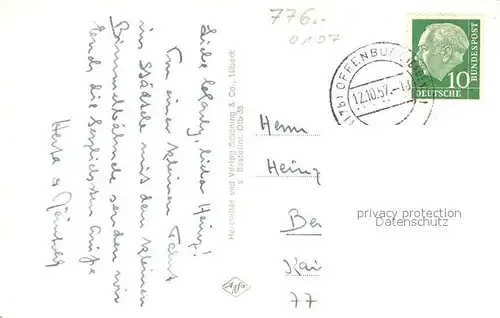 776.-
0197
(17b) OFFENBURG
12.10.57.-
10
DEUTSCHE
BUNDESPOST
Liebe
liebe Heinz!
Von einer kleinen Fahrt
ins Städtle mit dem kleinen
Bimmelbähnle senden wir
Euch die herzlichsten Grüße
Herta u.
Hersteller und Verlag Schöning & Co., Lübeck
S Bestellnr. Ofb 38
Agfa
Herrn
Heinz
Be
Kai
77
privacy protection
Datenschutz